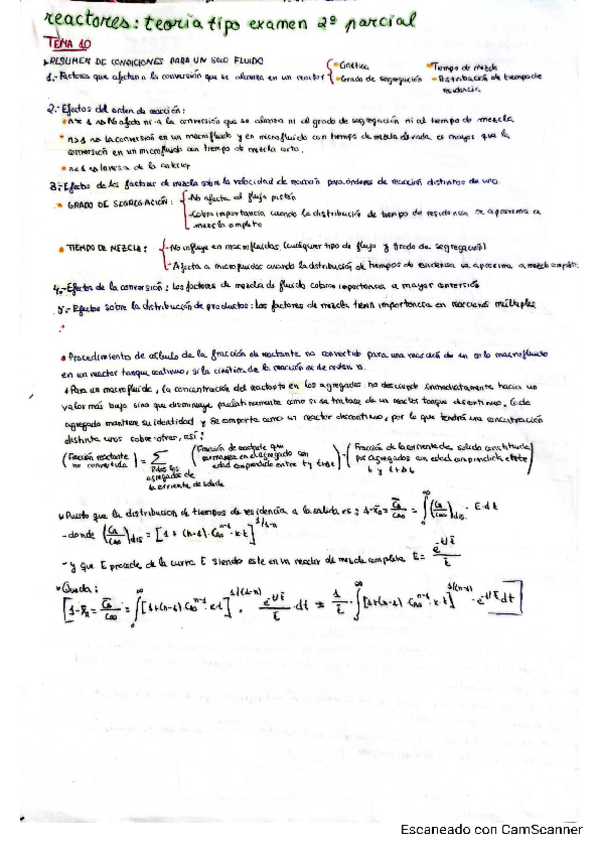 reactores: teoría tipo examen 2º parcial
TEMA 10
RESUMEN DE CONDICIONES PARA UN SOLO FLUIDO
1.- Factores que afectan a la conversión que se alcanza en un reactor
- Cinética
- Grado de segregación
- Tiempo de mezcla
- Distribución de tiempos de residencia
2.- Efectos del orden de reacción:
n=1 → No afecta ni a la conversión que se alcanza ni al grado de segregación ni al tiempo de mezcla
n>1 → la conversión en un macrofluido y en microfluido con tiempo de mezcla elevada es mayor que la
conversión en un microfluido con tiempo de mezcla corto.
n<1 → Inversa de la anterior
3.- Efectos de los factores de mezcla sobre la velocidad de reacción para órdenes de reacción distintos de uno.
GRADO DE SEGREGACIÓN:
- No afecta al flujo pistón
- Cobra importancia cuando la distribución de tiempo de residencia se aproxima a
mezcla completa
TIEMPO DE MEZCLA:
- No influye en macrofluidos (cualquier tipo de flujo y grado de segregación)
- Afecta a microfluidos cuando la distribución de tiempos de residencia se aproxima a mezcla completa
4.- Efectos de la conversión: Los factores de mezcla de fluido cobran importancia a mayor conversión
5.- Efectos sobre la distribución de productos: Los factores de mezcla tienen importancia en reacciones múltiples
Procedimiento de cálculo de la fracción de reactante no convertido para una reacción de un solo macrofluido
en un reactor tanque continuo, si la cinética de la reacción es de orden n.
Para un macrofluido, la concentración del reactante en los agregados no desciende inmediatamente hacia un
valor más bajo sino que disminuye paulatinamente como si se tratase de un reactor tanque discontinuo. Cada
agregado mantiene su identidad y se comporta como un reactor discontinuo, por lo que tendrá una concentración
distinta unos sobre otros, así:
(Fracción reactante no convertida) = Σ todos los agregados de la corriente de salida (Fracción de reactante que permanece en el agregado con edad comprendida entre t y t+Δt) · (Fracción de la corriente de salida constituida por agregados con edad comprendida entre t y t+Δt
Puesto que la distribución de tiempos de residencia a la salida es: 1-x̄A = C̄A/CA0 = ∫0^∞ (CA/CA0)dis · E · dt
- donde (CA/CA0)dis = [1 + (n-1) · CA0^(n-1) · k·t]^(1/1-n)
- y que E procede de la curva E siendo este en un reactor de mezcla completa E = e^(-t/t̄)/t̄
Queda:
[1-x̄A = C̄A/CA0 = ∫0^∞ [1+(n-1) CA0^(n-1) · k·t]^(1/(1-n)) · e^(-t/t̄)/t̄ · dt = 1/t̄ · ∫0^∞ [1+(n-1) CA0^(n-1) · k·t]^(1/(n-1)) · e^(-t/t̄) dt]
Escaneado con CamScanner